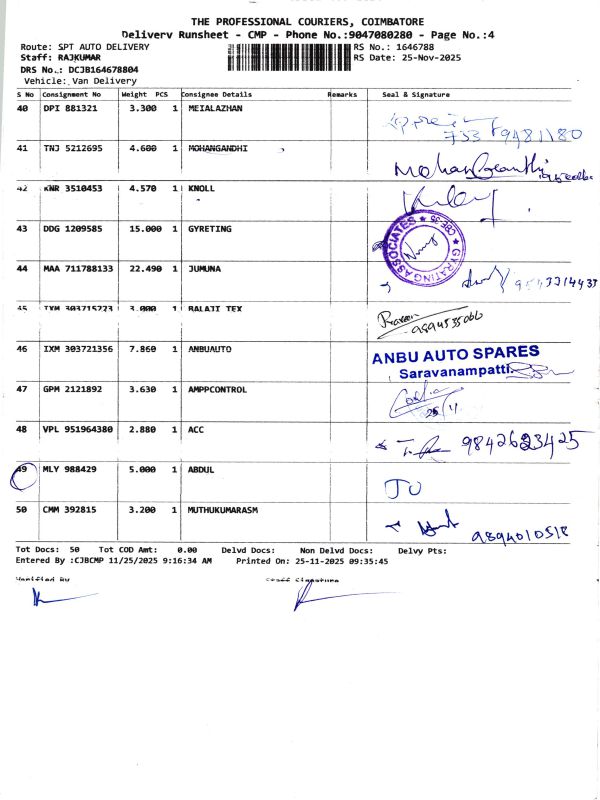 THE PROFESSIONAL COURIERS, COIMBATORE
Delivery Runsheet - CMP - Phone No.:9047080280 - Page No.:4
Route: SPT AUTO DELIVERY RS No.: 1646788
Staff: RAJKUMAR RS Date: 25-Nov-2025
DRS No.: DCJB164678804
Vehicle: Van Delivery
S No Consignment No Weight PCS Consignee Details Remarks Seal & Signature
40 DPI 881321 3.300 1 MEIALAZHAN
41 TNJ 5212695 4.600 1 MOHANGANDHI
42 KNR 3510453 4.570 1 KNOLL
43 DDG 1209585 15.000 1 GYRETING
GYRATING ASSOCIATES ★ CBE-35 ★
44 MAA 711788133 22.490 1 JUMUNA
45 IXM 303715223 3.000 1 BALAJI TEX
46 IXM 303721356 7.860 1 ANBUAUTO
ANBU AUTO SPARES
Saravanampatti
47 GPM 2121892 3.630 1 AMPPCONTROL
48 VPL 951964380 2.880 1 ACC 9842623425
49 MLY 988429 5.000 1 ABDUL
50 CMM 392815 3.200 1 MUTHUKUMARASM
Tot Docs: 50 Tot COD Amt: 0.00 Delvd Docs: Non Delvd Docs: Delvy Pts:
Entered By :CJBCMP 11/25/2025 9:16:34 AM Printed On: 25-11-2025 09:35:45
Verified By Staff Signature